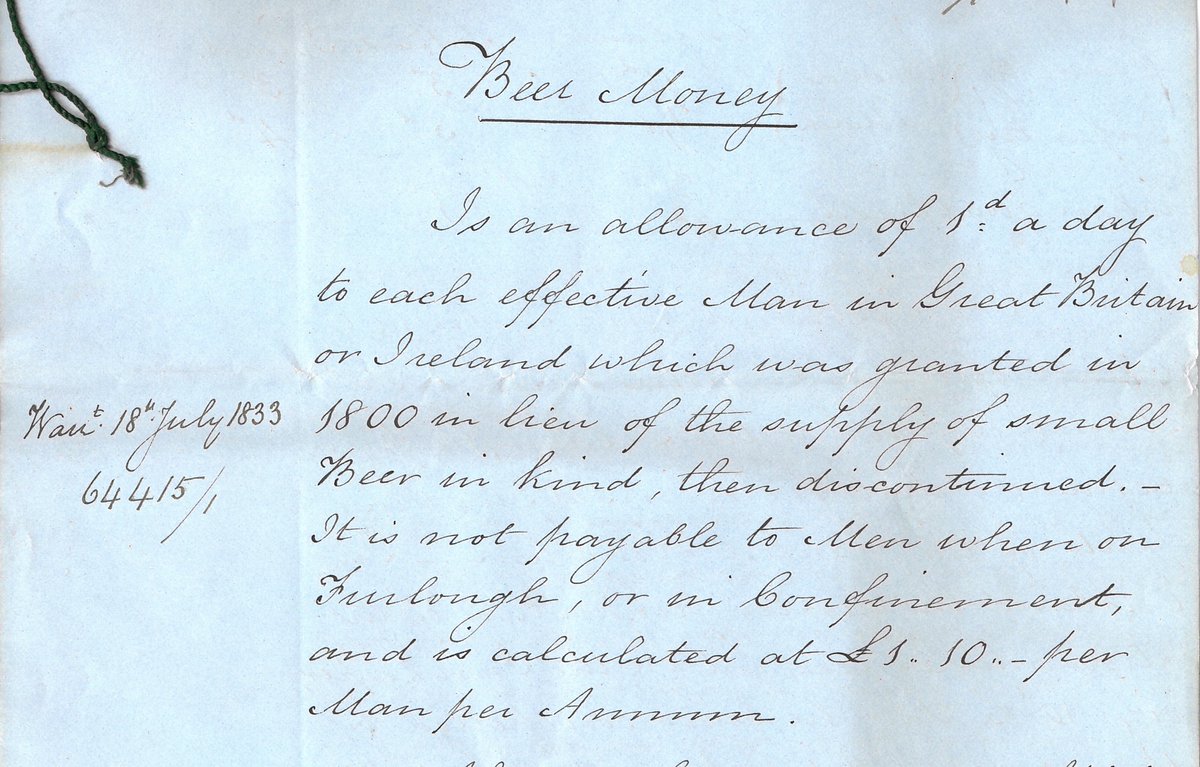 Beer Money
Is an allowance of 1d. a day
to each effective Man in Great Britain
or Ireland which was granted in
Warrt. 18th July 1833
64415/1
1800 in lieu of the supply of small
Beer in kind, then discontinued. –
It is not payable to Men when on
Furlough, or in Confinement,
and is calculated at £1.. 10.. – per
Man per Annum.